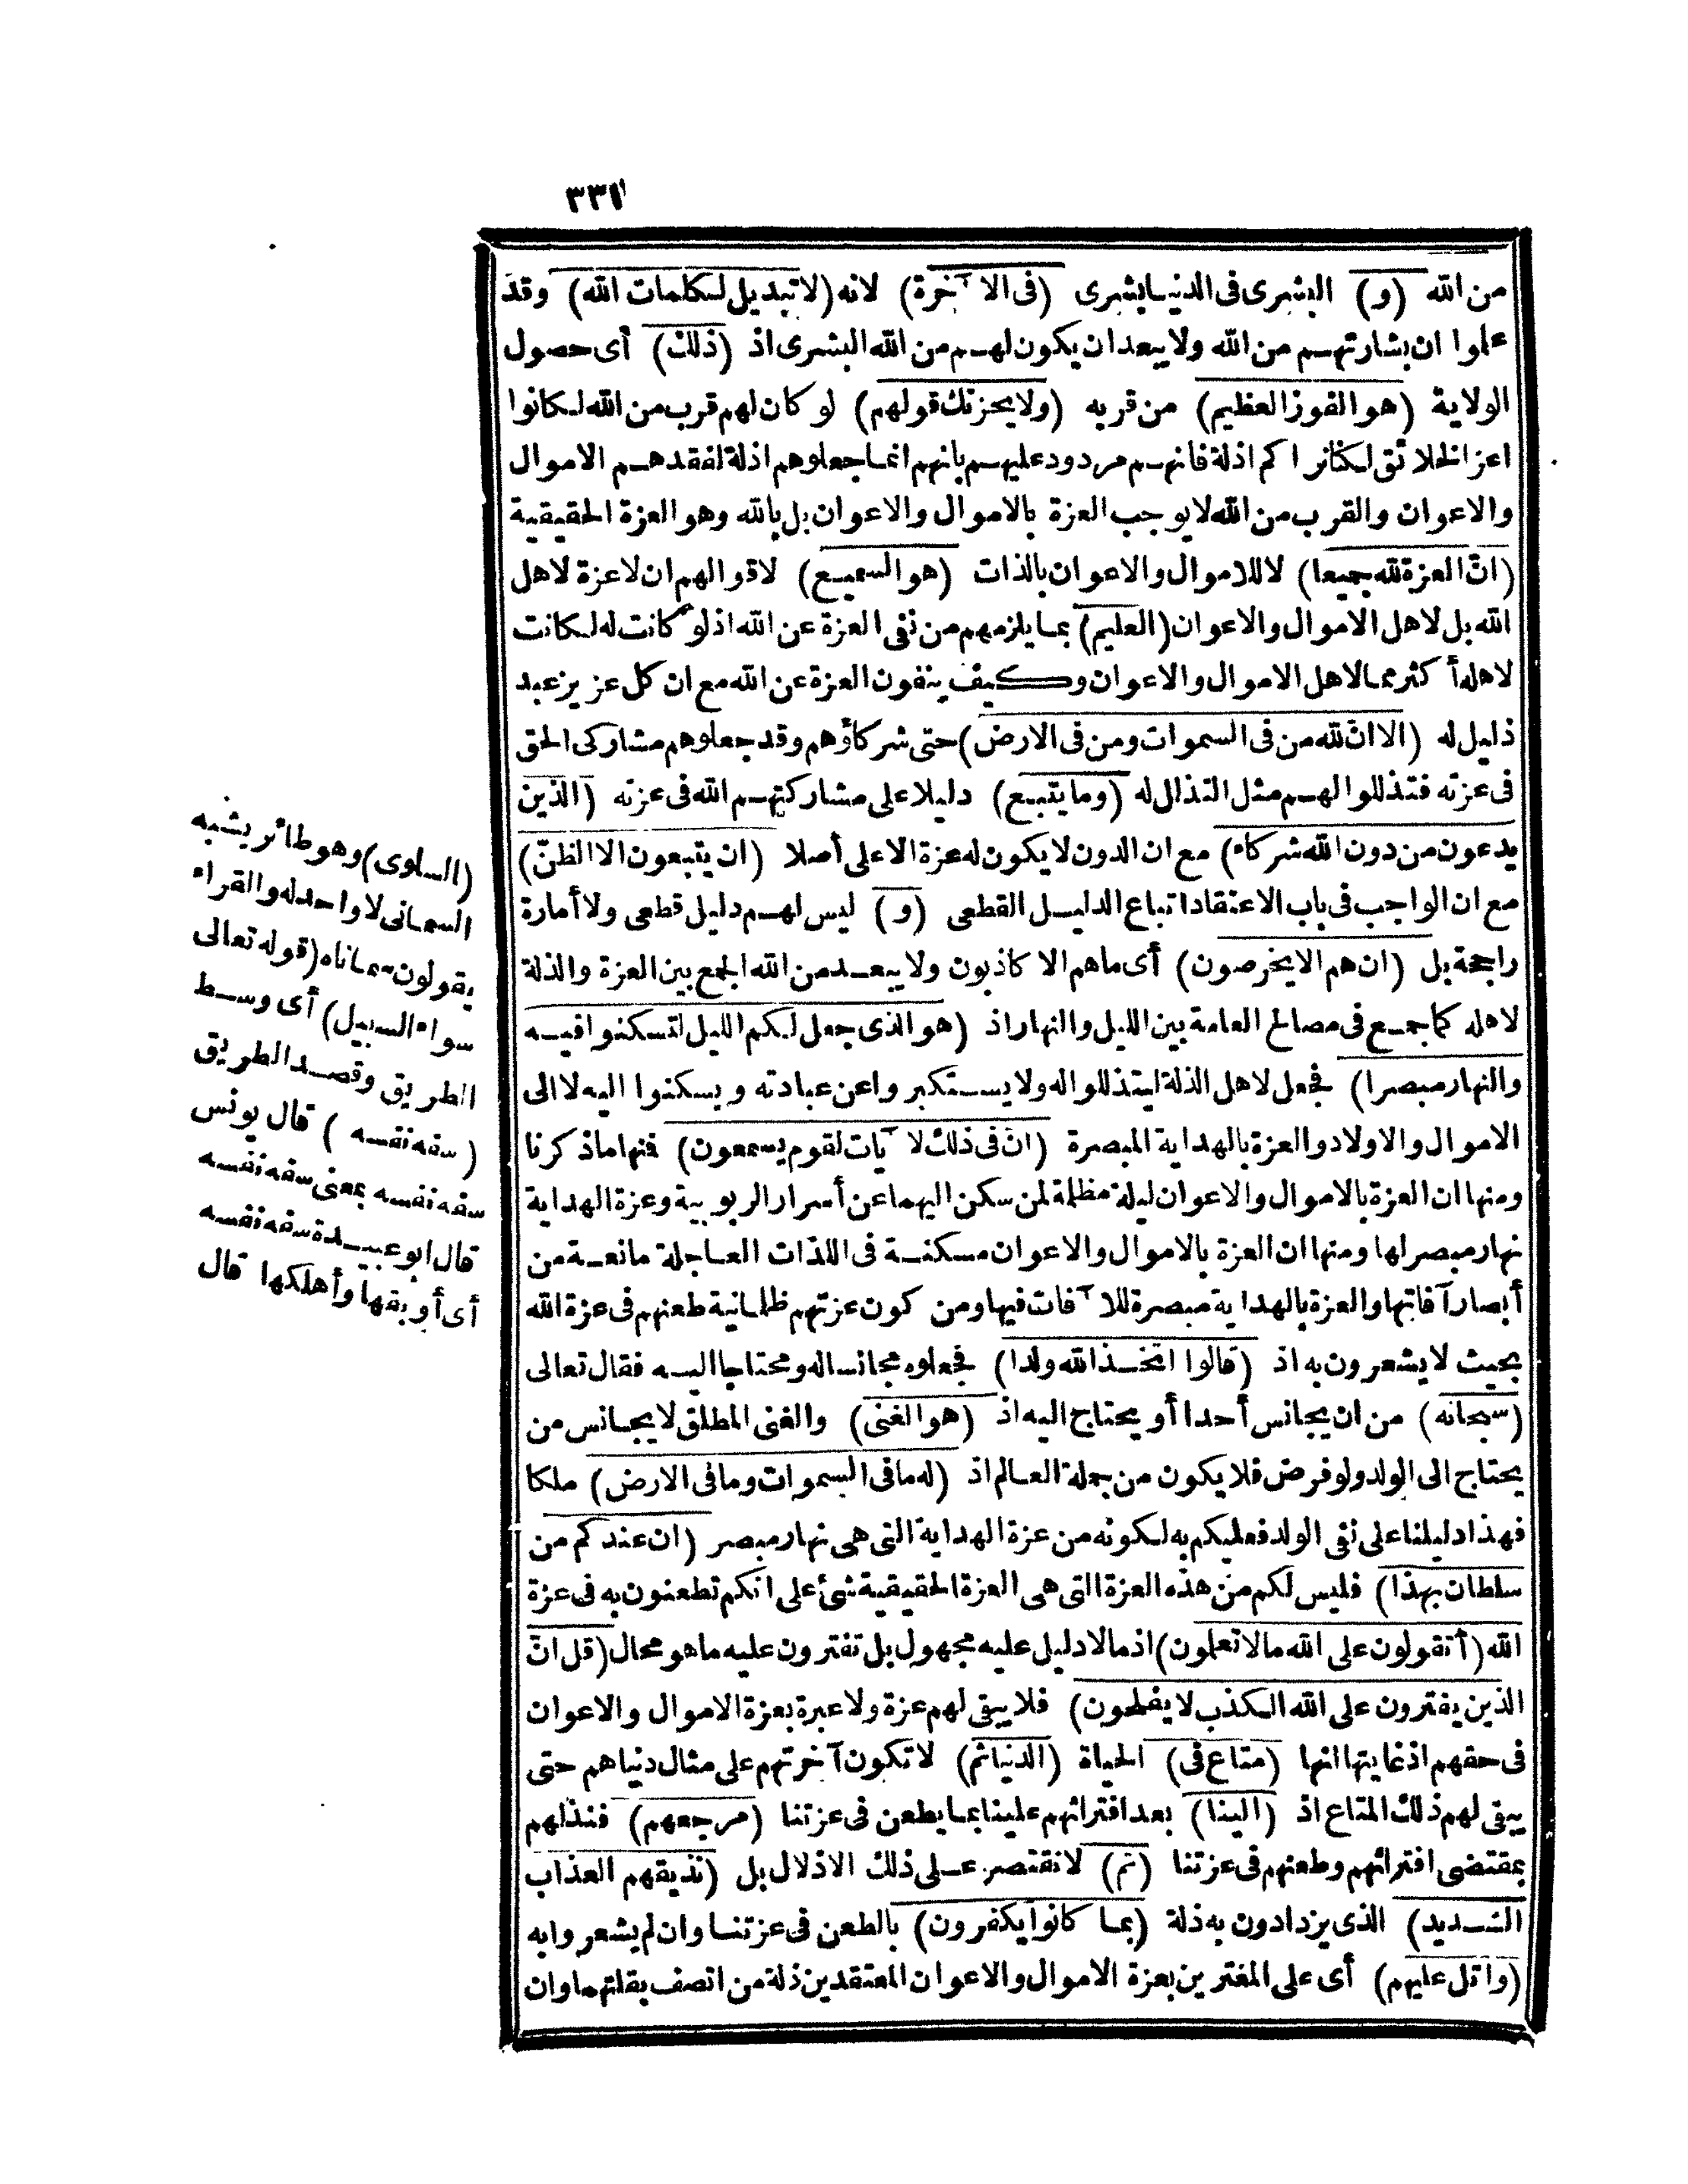 ٣٣١
من الله (و) البشرى فى الدنيا بشرى (فى الآخرة) لانه (لا تبديل لكلمات الله) وقد
علموا ان بشارتهم من الله ولا يبعد ان يكون لهم من الله البشرى اذ (ذلك) أى حصول
الولاية (هو الفوز العظيم) من قربه (ولا يحزنك قولهم) لو كان لهم قرب من الله لكانوا
اعز الخلائق لكنا نراكم اذلة فانهم مردود عليهم بانهم انما جعلوهم اذلة لفقدهم الاموال
والاعوان والقرب من الله لا يوجب العزة بالاموال والاعوان بل بالله وهو العزة الحقيقية
(انّ العزة لله جميعا) لا للاموال والاعوان بالذات (هو السميع) لاقوالهم ان لا عزة لاهل
الله بل لاهل الاموال والاعوان (العليم) بما يلزمهم من نفى العزة عن الله اذ لو كانت له لكانت
لاهله أكثر مما لاهل الاموال والاعوان وكيف ينفون العزة عن الله مع ان كل عزيز عبد
ذليل له (الا انّ لله من فى السموات ومن فى الارض) حتى شركاؤهم وقد جعلوهم مشاركى الحق
فى عزته فتذللوا لهم مثل التذلل له (وما يتبع) دليلا على مشاركتهم الله فى عزته (الذين
يدعون من دون الله شركاء) مع ان الدون لا يكون له عزة الاعلى أصلا (ان يتبعون الا الظنّ)
مع ان الواجب فى باب الاعتقاد اتباع الدليل القطعى (و) ليس لهم دليل قطعى ولا أمارة
راجحة بل (ان هم الا يخرصون) أى ما هم الا كاذبون ولا يبعد من الله الجمع بين العزة والذلة
لاهله كما جمع فى مصالح العامة بين الليل والنهار اذ (هو الذى جعل لكم الليل لتسكنوا فيه
والنهار مبصرا) فجعل لاهل الذلة ليتذللوا له ولا يستكبروا عن عبادته ويسكنوا اليه لا الى
الاموال والاولاد والعزة بالهداية المبصرة (انّ فى ذلك لآيات لقوم يسمعون) فنها ما ذكرنا
ومنها ان العزة بالاموال والاعوان ليلة مظلمة لمن سكن اليهما عن أسرار الربوبية وعزة الهداية
نهار مبصر لها ومنها ان العزة بالاموال والاعوان مسكنة فى اللذات العاجلة مانعة من
أبصار آفاتها والعزة بالهداية مبصرة للآفات فيها ومن كون عزتهم ظلمانية طعنهم فى عزة الله
بحيث لا يشعرون به اذ (قالوا اتخذ الله ولدا) فجعلوه مجانسا له ومحتاجا اليه فقال تعالى
(سبحانه) من ان يجانس أحدا أو يحتاج اليه اذ (هو الغنى) والغنى المطلق لا يجانس من
يحتاج الى الولد ولو فرض فلا يكون من جملة العالم اذ (له ما فى السموات وما فى الارض) ملكا
فهذا دليلنا على نفى الولد فعليكم به لكونه من عزة الهداية التى هى نهار مبصر (ان عندكم من
سلطان بهذا) فليس لكم من هذه العزة التى هى العزة الحقيقية شئ على انكم تطعنون به فى عزة
الله (أتقولون على الله ما لا تعلمون) اذ ما لا دليل عليه مجهول بل تفترون عليه ما هو محال (قل انّ
الذين يفترون على الله الكذب لا يفلحون) فلا يبقى لهم عزة ولا عبرة بعزة الاموال والاعوان
فى حقهم اذ غايتها انها (متاع فى) الحياة (الدنيا ثم) لا تكون آخرتهم على مثال دنياهم حتى
يبقى لهم ذلك المتاع اذ (الينا) بعد افترائهم علينا بما يطعن فى عزتنا (مرجعهم) فنذلهم
بمقتضى افترائهم وطعنهم فى عزتنا (ثم) لا نقتصر على ذلك الاذلال بل (نذيقهم العذاب
الشديد) الذى يزدادون به ذلة (بما كانوا يكفرون) بالطعن فى عزتنا وان لم يشعروا به
(واتل عليهم) أى على المغترين بعزة الاموال والاعوان المعتقدين ذلة من اتصف بقلتهما وان
(السلوى) وهو طائر يشبه
السمانى لا واحد له والقراء
يقولون سماناه (قوله تعالى
سواء السبيل) أى وسط
الطريق وقصد الطريق
(سفه نفسه) قال يونس
سفه نفسه بمعنى سفه نفسه
قال ابو عبيدة سفه نفسه
أى أوبقها وأهلكها قال